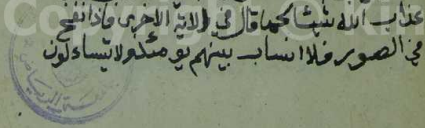 عذاب الله شيئا كما قال في الاية الاخرى فاذا نفخ
في الصور فلا انساب بينهم يومئذ ولا يتساءلون